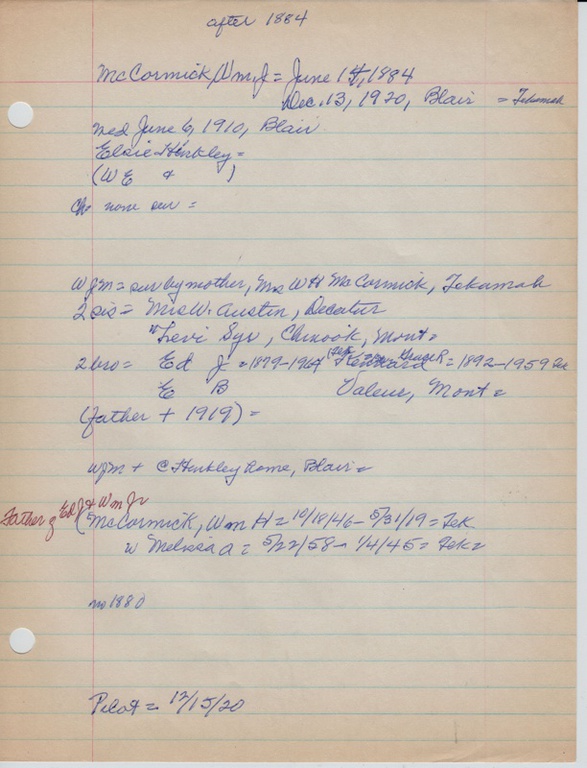 after 1884
McCormick, Wm J = June 14, 1884
Dec. 13, 1920, Blair = Tekamah
Med June 6, 1910, Blair
Elsie Hinkley =
(W E & )
Ch none sur =
WJM = sur by mother, Mrs W H McCormick, Tekamah
2 sis = Mrs W. Austin, Decatur
" Levi Sys, Chinook, Mont =
2 bro = Ed J = 1879-1964 Kennard = 1892-1959
E B Valeur, Mont =
(father + 1919) =
WJM + C Hinkley home, Blair =
Father of Ed J & Wm Jr
(McCormick, Wm H = 10/18/46 - 5/31/19 = Tek
w Melissa A = 5/22/58 - 1/4/45 = Tek =
no 1880
Pilot = 12/15/20